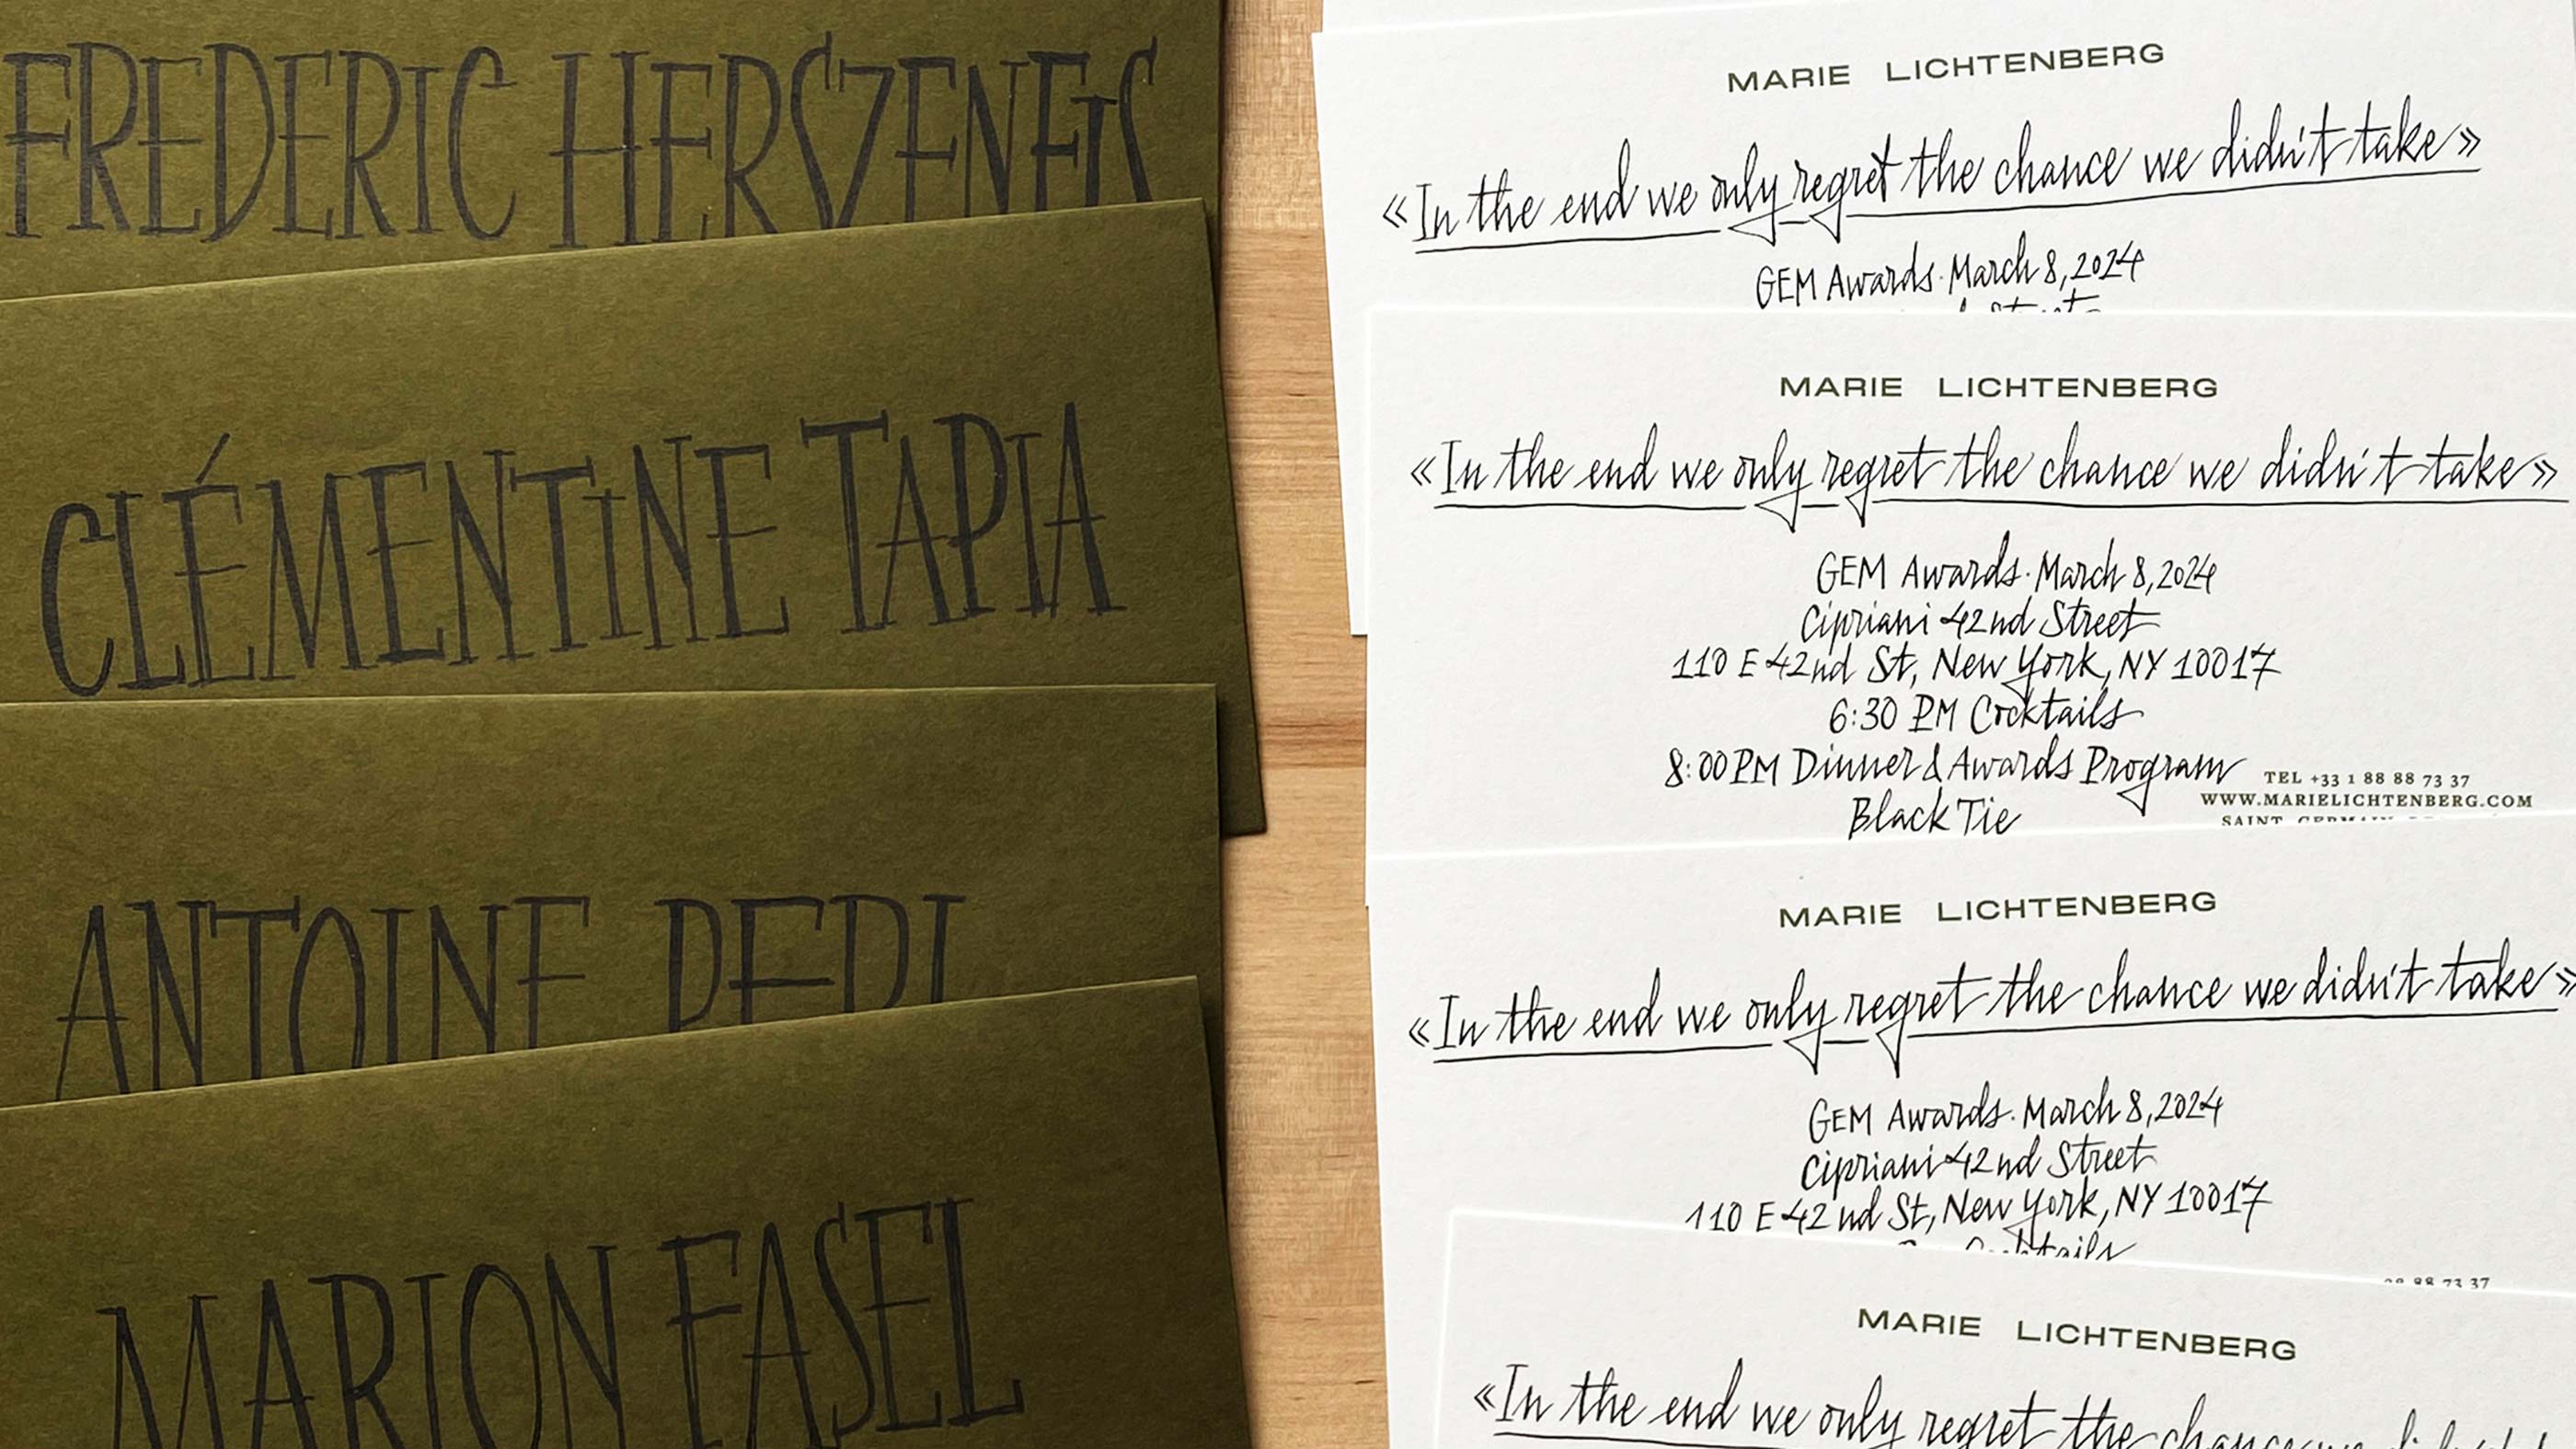 FREDERIC
CLÉMENTINE TAPIA
ANTOINE
MARION FASEL
MARIE LICHTENBERG
«In the end we only regret the chance we didn't take»
GEM Awards. March 8, 2024
MARIE LICHTENBERG
«In the end we only regret the chance we didn't take»
GEM Awards. March 8, 2024
Cipriani 42nd Street
110 E 42nd St, New York, NY 10017
6:30 PM Cocktails
8:00 PM Dinner & Awards Program
Black Tie
TEL +33 1 88 88 73 37
WWW.MARIELICHTENBERG.COM
SAINT GERMAIN
MARIE LICHTENBERG
«In the end we only regret the chance we didn't take»
GEM Awards. March 8, 2024
Cipriani 42nd Street
110 E 42nd St, New York, NY 10017
Cocktails
88 73 37
MARIE LICHTENBERG
«In the end we only regret the chance we